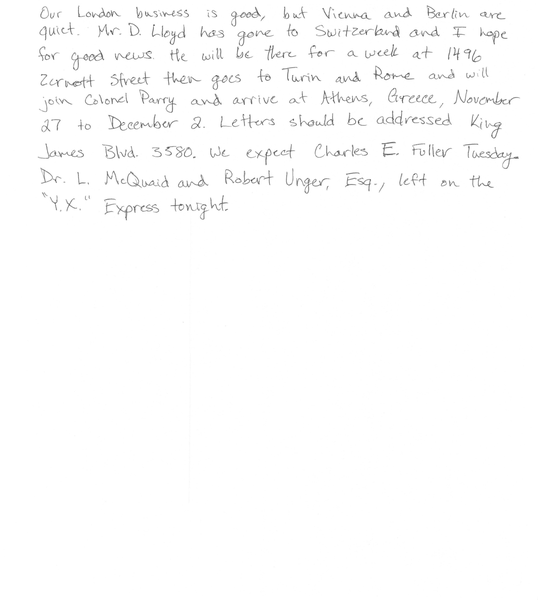 Our London business is good, but Vienna and Berlin are
quiet. Mr. D. Lloyd has gone to Switzerland and I hope
for good news. He will be there for a week at 1496
Zermott Street then goes to Turin and Rome and will
join Colonel Parry and arrive at Athens, Greece, November
27 to December 2. Letters should be addressed King
James Blvd. 3580. We expect Charles E. Fuller Tuesday.
Dr. L. McQuaid and Robert Unger, Esq., left on the
"Y.X." Express tonight.